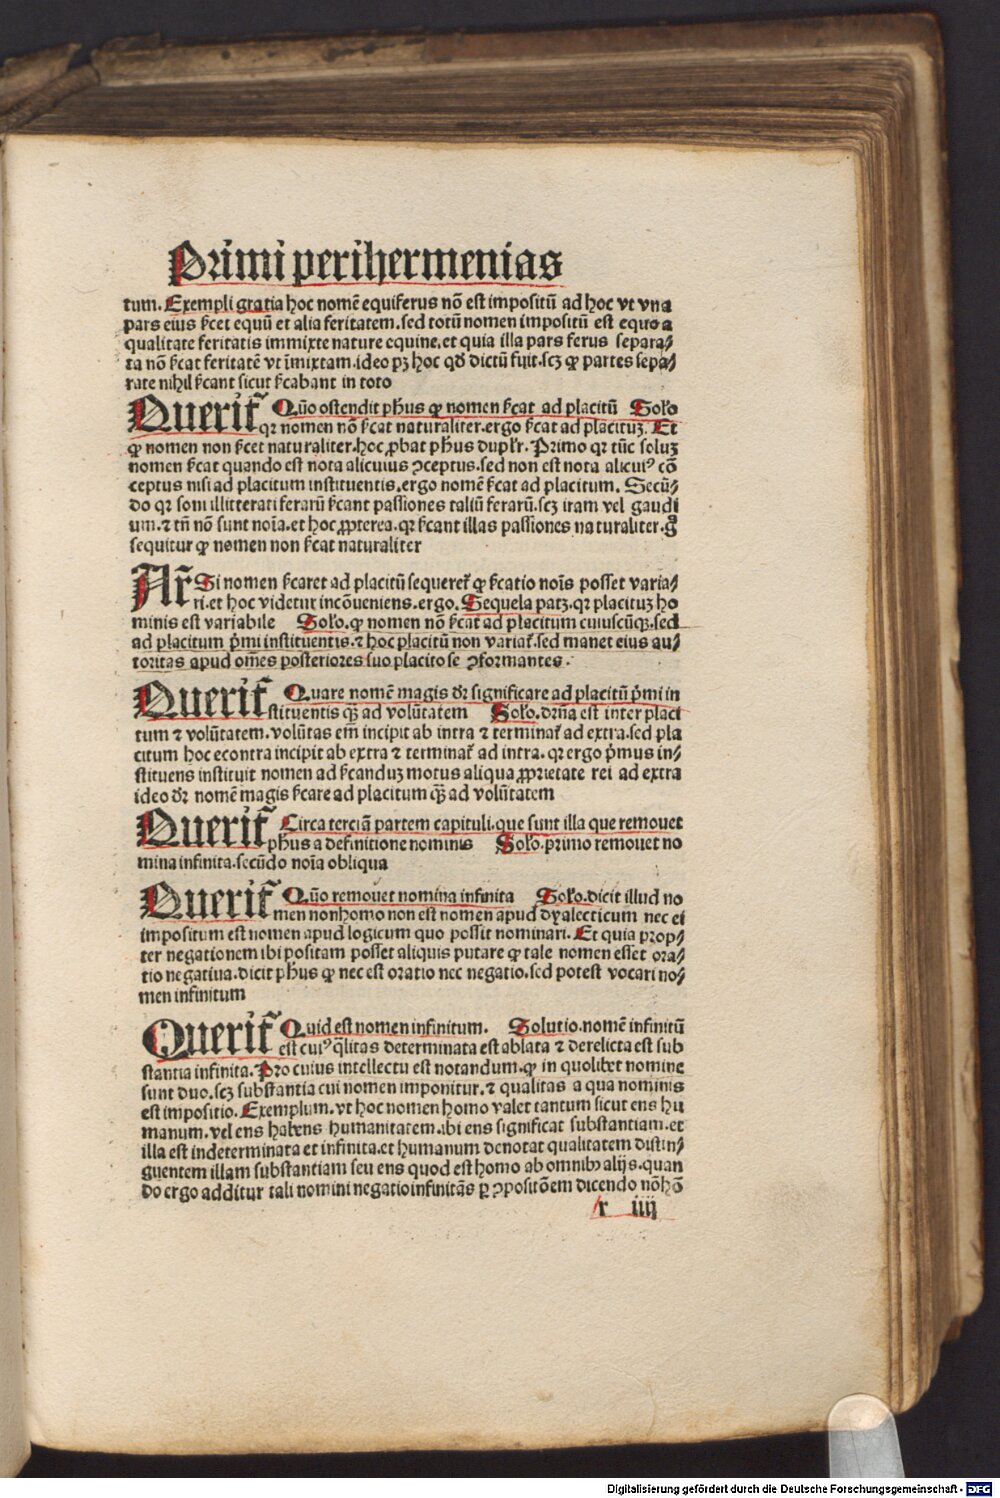 Primi perihermenias
tum. Exempli gratia hoc nomē equiferus nō est impositū ad hoc vt vna
pars eius ſcet equū et alia feritatem. sed totū nomen impositū est equo a
qualitate feritatis immixte nature equine. et quia illa pars ferus separa⸗
ta nō ſcat feritatē vt īmixtam. ideo pꝫ hoc qđ dictū fuit. scꝫ ꝙ partes sepa⸗
rate nihil ſcant sicut ſcabant in toto
Querit᷑ Quō ostendit ph̄us ꝙ nomen ſcat ad placitū Solo
qꝛ nomen nō ſcat naturaliter. ergo ſcat ad placituꝫ. Et
ꝙ nomen non ſcet naturaliter. hoc ꝓbat ph̄us dupłr. Primo qꝛ tūc soluꝫ
nomen ſcat quando est nota alicuius ꝯceptus. sed non est nota alicuiꝰ cō
ceptus nisi ad placitum instituentis. ergo nomē ſcat ad placitum. Secū⸗
do qꝛ soni illitterati ferarū ſcant passiones taliū ferarū. scꝫ iram vel gaudi
um. ⁊ tn̄ nō sunt noīa. et hoc ꝓpterea. qꝛ ſcant illas passiones na turaliter. g̊
sequitur ꝙ nomen non ſcat naturaliter
Ar᷑ Si nomen ſcaret ad placitū sequeret᷑ ꝙ ſcatio noīs posset varia⸗
ri. et hoc videtur incōueniens. ergo. Sequela patꝫ. qꝛ placituꝫ ho
minis est variabile Solo. ꝙ nomen nō ſcat ad placitum cuiuscūqꝫ. sed
ad placitum p̄mi instituentis. ⁊ hoc placitū non variat᷑. sed manet eius au⸗
toritas apud om̄es posteriores suo placito se ꝯformantes.
Querit᷑ Quare nomē magis dr̄ significare ad placitū p̄mi in
stituentis qꝫ̄ ad volūtatem Solo. dr̄na est inter placi
tum ⁊ volūtatem. volūtas em̄ incipit ab intra ⁊ terminat᷑ ad extra. sed pla
citum hoc econtra incipit ab extra ⁊ terminat᷑ ad intra. qꝛ ergo p̄mus in⸗
stituens instituit nomen ad ſcanduꝫ motus aliqua ꝓprietate rei ad extra
ideo dr̄ nomē magis ſcare ad placitum qꝫ̄ ad volūtatem
Querit᷑ Circa terciā partem capituli. que sunt illa que remouet
ph̄us a definitione nominis Solo. primo remouet no
mina infinita. secūdo noīa obliqua
Querit᷑ Quō remouet nomina infinita Solo. dicit illud no
men nonhomo non est nomen apud dyalecticum nec ei
impositum est nomen apud logicum quo possit nominari. Et quia prop⸗
ter negationem ibi positam posset aliquis putare ꝙ tale nomen esset ora⸗
tio negatiua. dicit ph̄us ꝙ nec est oratio nec negatio. sed potest vocari no⸗
men infinitum
Querit᷑ Quid est nomen infinitum. Solutio. nomē infinitū
est cuiꝰ q̄litas determinata est ablata ⁊ derelicta est sub
stantia infinita. Pro cuius intellectu est notandum. ꝙ in quolibet nomine
sunt duo. scꝫ substantia cui nomen imponitur. ⁊ qualitas a qua nominis
est impositio. Exemplum. vt hoc nomen homo valet tantum sicut ens hu
manum. vel ens habens humanitatem. ibi ens significat substantiam. et
illa est indeterminata et infinita. et humanum denotat qualitatem distin⸗
guentem illam substantiam seu ens quod est homo ab omnibꝫ alijs. quan
do ergo additur tali nomini negatio infinitās ꝑ ꝯpositōem dicendo nōhō
r iiij
Digitalisierung gefördert durch die Deutsche Forschungsgemeinschaft - DFG